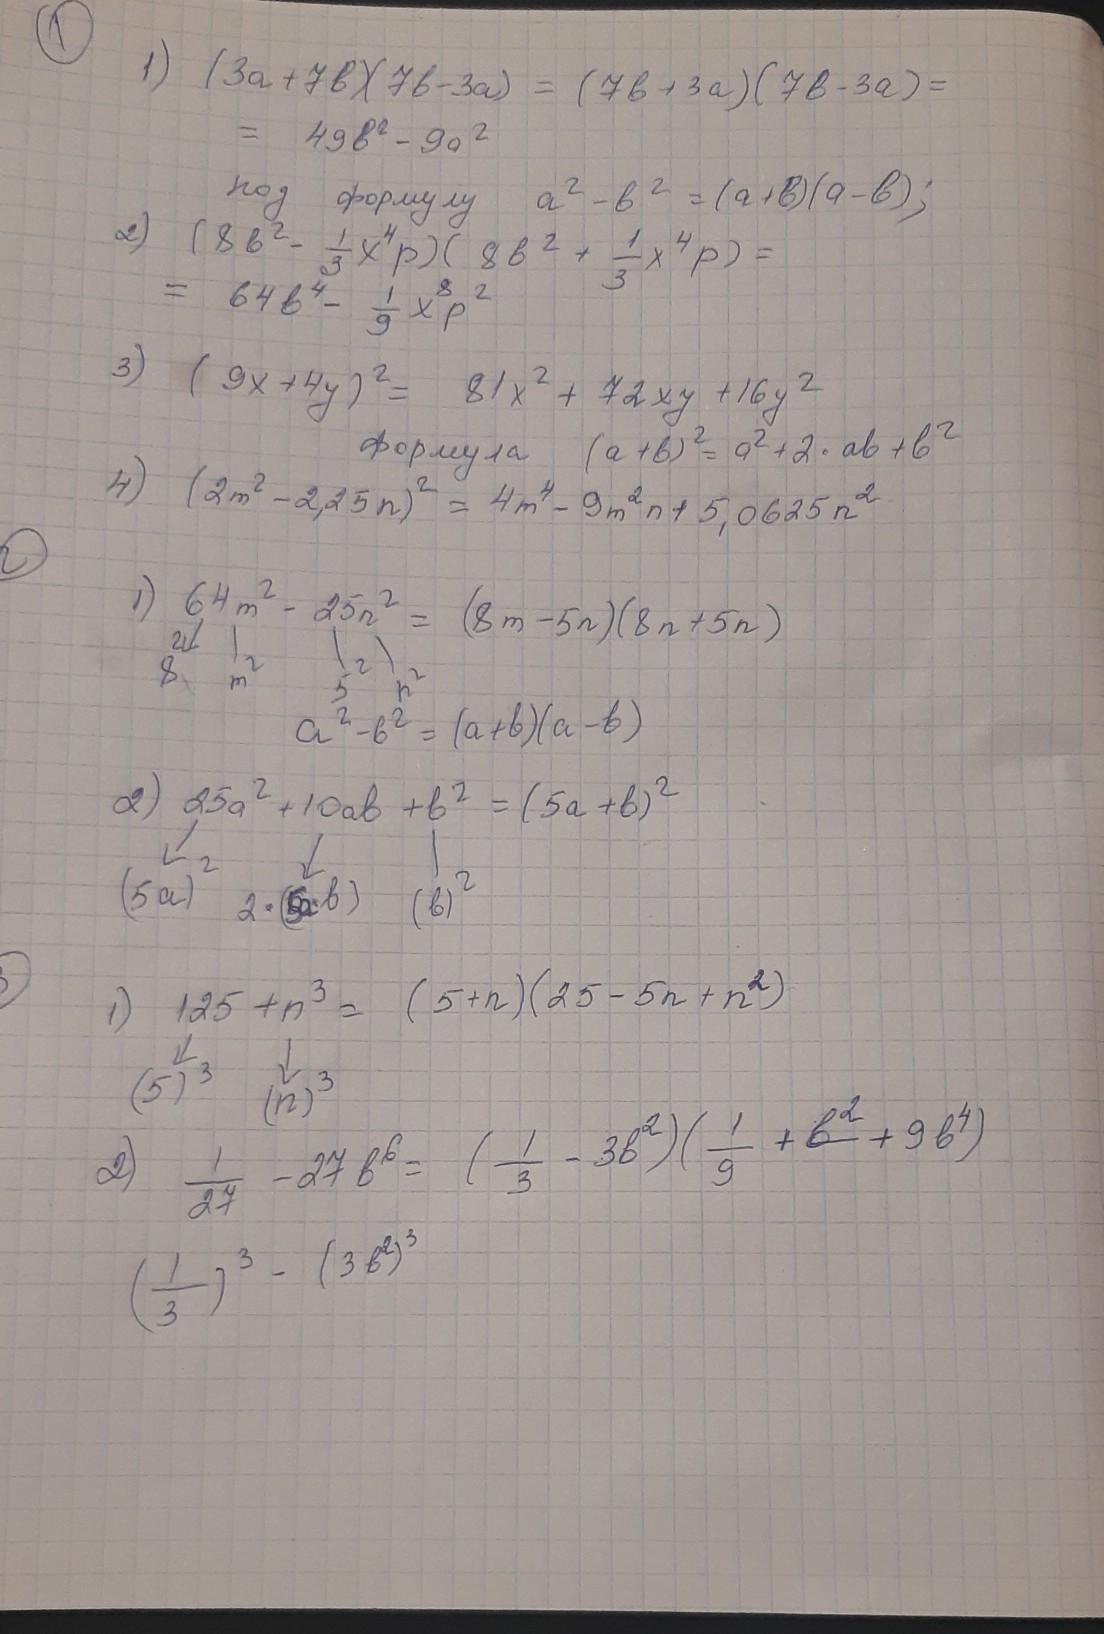 1
1) (3a+7b)(7b-3a) = (7b+3a)(7b-3a) =
= 49b² - 9a²
под формулу a² - b² = (a+b)(a-b);
2) (8b² - 1/3 x⁴p)(8b² + 1/3 x⁴p) =
= 64b⁴ - 1/9 x⁸p²
3) (9x+4y)² = 81x² + 72xy + 16y²
формула (a+b)² = a² + 2·ab + b²
4) (2m² - 2,25n)² = 4m⁴ - 9m²n + 5,0625n²
2
1) 64m² - 25n² = (8m-5n)(8n+5n)
8² m² 5² n²
a² - b² = (a+b)(a-b)
2) 25a² + 10ab + b² = (5a+b)²
(5a)² 2·(5a·b) (b)²
3
1) 125 + n³ = (5+n)(25-5n+n²)
(5)³ (n)³
2) 1/27 - 27b⁶ = (1/3 - 3b²)(1/9 + b² + 9b⁴)
(1/3)³ - (3b²)³